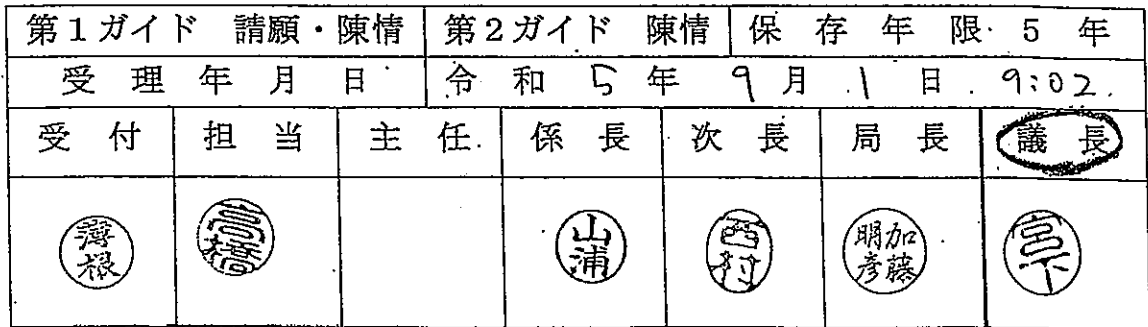 第1ガイド 請願・陳情 第2ガイド 陳情 保存年限 5年
受理年月日 令和5年9月1日 9:02
受付 担当 主任 係長 次長 局長 議長
薄根 高橋 山浦 西村 加藤明彦 宮下